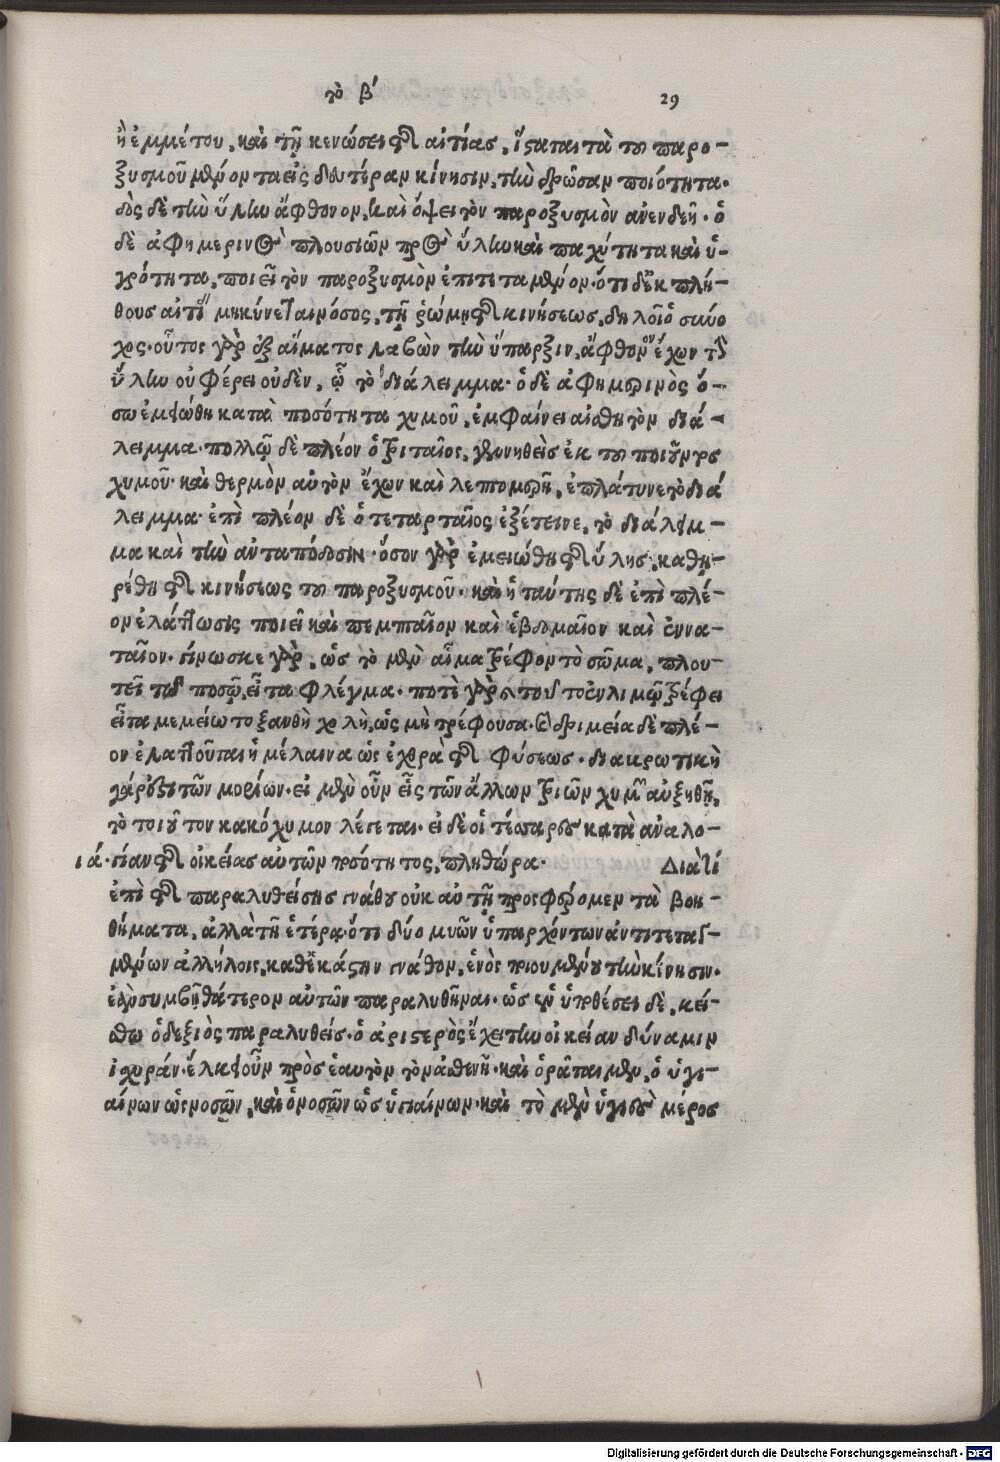 τὸ β′ 29
ἢ ἐμμέτου, καὶ τῇ κενώσει τῆς αἰτίας, ἵσταται τὰ τοῦ παρο-
ξυσμοῦ μένοντα εἰς δευτέραν κίνησιν, τὴν δρῶσαν ποιότητα.
δὸς δὲ τὴν ὕλην ἄφθονον, καὶ ὄψει τὸν παροξυσμὸν ἀνενδεῆ. ὁ
δὲ ἀφημερινὸς πλουσιῶν πρὸς ὕλην καὶ παχύτητα καὶ ὑ-
γρότητα, ποιεῖ τὸν παροξυσμὸν ἐπιτεταμένον. ὅτι δὲ ἐκ πλή-
θους αἰτίου μηκύνεται νόσος, τῇ ῥώμῃ τῆς κινήσεως, δηλοῖ ὁ σύνο
χος. οὗτος γὰρ ἐξ αἵματος λαβὼν τὴν ὕπαρξιν, ἄφθονον ἔχων τὴν
ὕλην οὐ φέρει οὐδὲν, ᾧ τὸ διάλειμμα. ὁ δὲ ἀφημερινὸς ὅ-
σῳ ἐμειώθη κατὰ ποσότητα χυμοῦ, ἐμφαίνει αἰσθητὸν διά-
λειμμα. πολλῷ δὲ πλέον ὁ τριταῖος, γεννηθεὶς ἐκ τοῦ ποιοῦντος
χυμοῦ. καὶ θερμὸν αὐτὸν ἔχων καὶ λεπτομερῆ, ἐπλάτυνε τὸ διά
λειμμα. ἐπὶ πλέον δὲ ὁ τεταρταῖος ἐξέτεινε, τὸ διάλειμ-
μα καὶ τὴν ἀνταπόδοσιν. ὅσον γὰρ ἐμειώθη τῆς ὕλης, καθῃ-
ρέθη τῆς κινήσεως τοῦ παροξυσμοῦ. καὶ ἡ ταύτης δὲ ἐπὶ πλέ-
ον ἐλάττωσις ποιεῖ καὶ πεμπταῖον καὶ ἑβδομαῖον καὶ ἐννα-
ταῖον. γίνωσκε γὰρ, ὡς τὸ μὲν αἷμα τρέφον τὸ σῶμα, πλου-
τεῖ τῷ ποσῷ, εἶτα φλέγμα. ποτὲ γὰρ τοῦτο ἐνλιμῷ τρέφει
εἶτα μεμείωτο ξανθὴ χολὴ, ὡς μὴ τρέφουσα. καὶ δριμεία δὲ πλέ-
ον ἐλαττοῦται ἡ μέλαινα ὡς ἐχθρὰ τῆς φύσεως. διακρωτικὴ
γάρ ἐστι τῶν μορίων. εἰ μὲν οὖν εἷς τῶν ἄλλων τριῶν χυμῶν αὐξηθῇ,
τὸ τοιοῦτον κακόχυμον λέγεται. εἰ δὲ οἱ τέσσαρες κατὰ ἀναλο-
ιά. γίαν τῆς οἰκείας αὐτῶν ποσότητος, πληθώρα. Διατί
ἐπὶ τῆς παραλυθείσης γνάθου οὐκ αὐτῇ προσφέρομεν τὰ βοη-
θήματα, ἀλλὰ τῇ ἑτέρᾳ. ὅτι δύο μυῶν ὑπαρχόντων ἀντιτεταγ-
μένων ἀλλήλοις, καθ' ἑκάστην γνάθον, ἑνὸς ποιουμένου τὴν κίνησιν.
ἐὰν συμβῇ θάτερον αὐτῶν παραλυθῆναι. ὡς ἐν ὑποθέσει δὲ, κεί-
σθω ὁ δεξιὸς παραλυθείς. ὁ ἀριστερὸς ἔχει τὴν οἰκείαν δύναμιν
ἰσχυράν. ἕλκει οὖν πρὸς ἑαυτὸν τὸν ἀσθενῆ. καὶ ὁρᾶται μὲν, ὁ ὑγι-
αίνων ὡς νοσῶν, καὶ ὁ νοσῶν ὡς ὑγιαίνων. καὶ τὸ μὲν ὑγιὲς μέρος
Digitalisierung gefördert durch die Deutsche Forschungsgemeinschaft - DFG